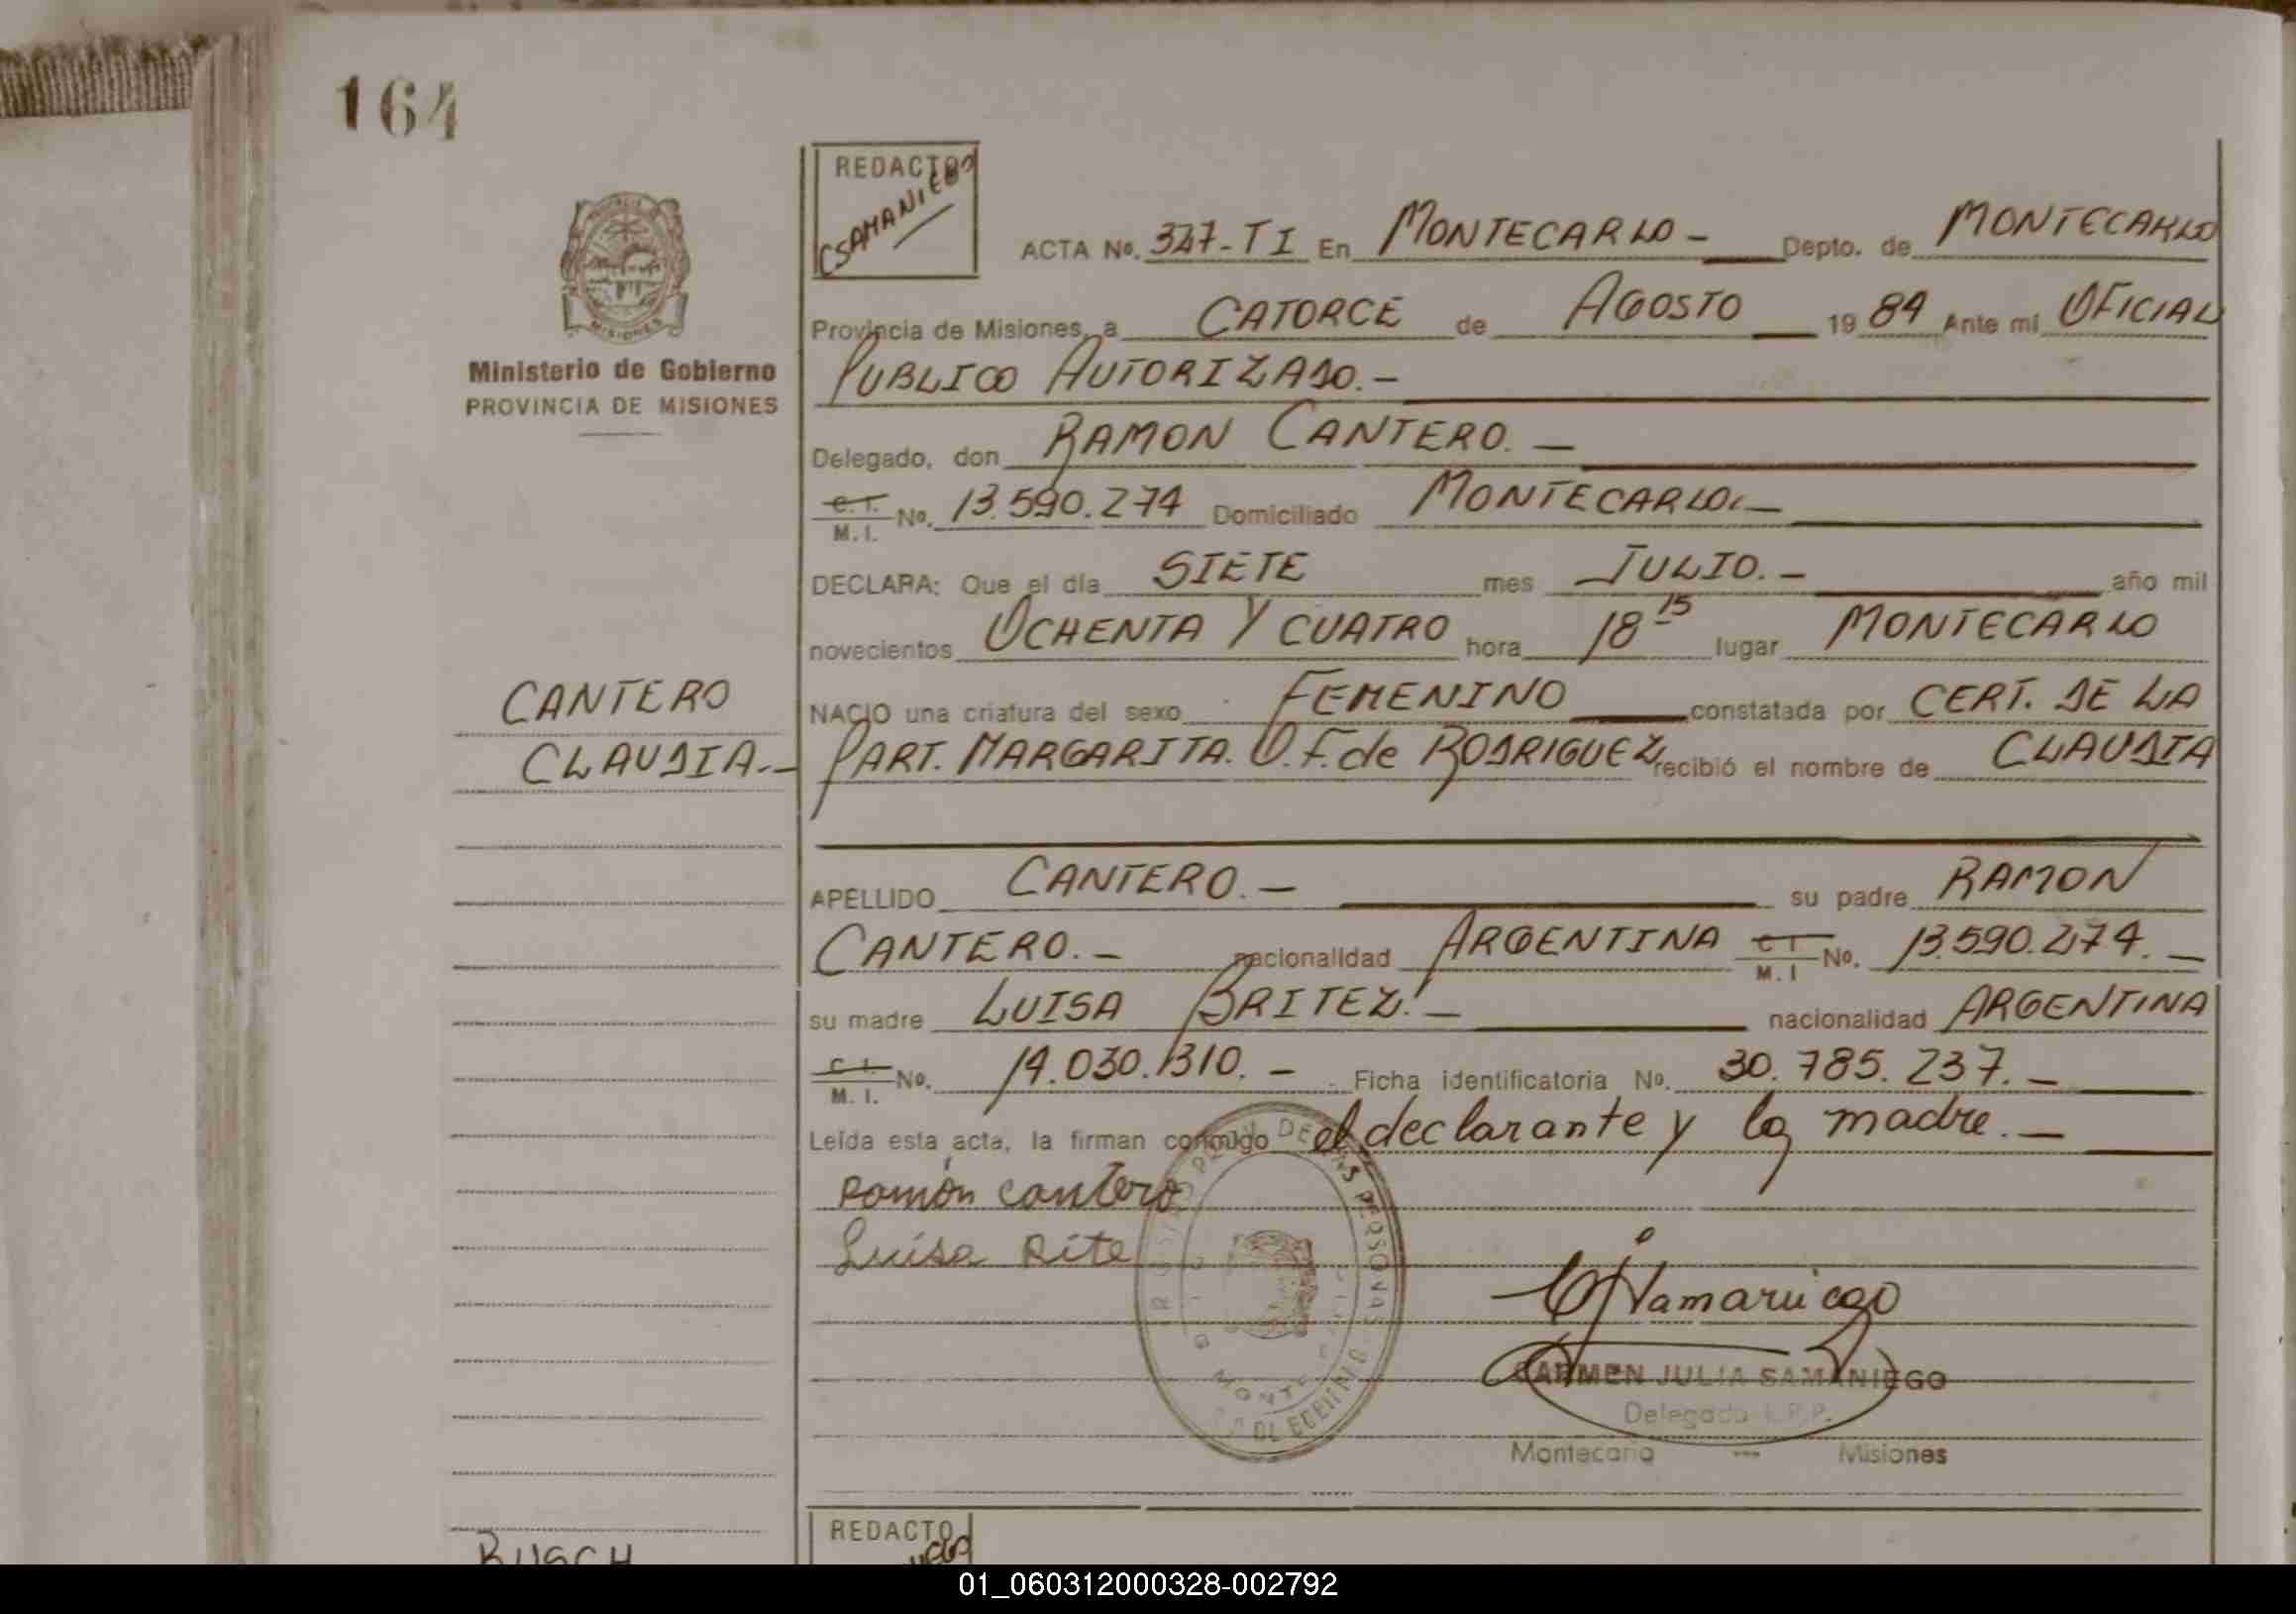 164
REDACTO
CSAMANIEGO
MISIONES
Ministerio de Gobierno
PROVINCIA DE MISIONES
ACTA No. 327-TI En MONTECARLO - Depto. de MONTECARLO
Provincia de Misiones, a CATORCE de AGOSTO 1984 Ante mí OFICIAL
PUBLICO AUTORIZADO.-
Delegado, don RAMON CANTERO. -
C. I. M. I. No. 13.590.274 Domiciliado MONTECARLO.-
DECLARA: Que el día SIETE mes JULIO. - año mil
novecientos OCHENTA Y CUATRO hora 18 15 lugar MONTECARLO
CANTERO
CLAUDIA.-
NACIO una criatura del sexo FEMENINO constatada por CERT. DE LA
PART. MARGARITA. O. F. de RODRIGUEZ recibió el nombre de CLAUDIA
APELLIDO CANTERO. - su padre RAMON
CANTERO. - nacionalidad ARGENTINA C I M. I No. 13.590.274. -
su madre LUISA BRITEZ. - nacionalidad ARGENTINA
C. I. M. I. No. 14.030.310. - Ficha identificatoria No. 30.785.237. -
Leída esta acta, la firman conmigo el declarante y la madre. -
Ramón cantero
Luisa Rite
CJSamaniego
CARMEN JULIA SAMANIEGO
Delegada
Montecarlo --- Misiones
REDACTO
BUSCH
01_060312000328-002792